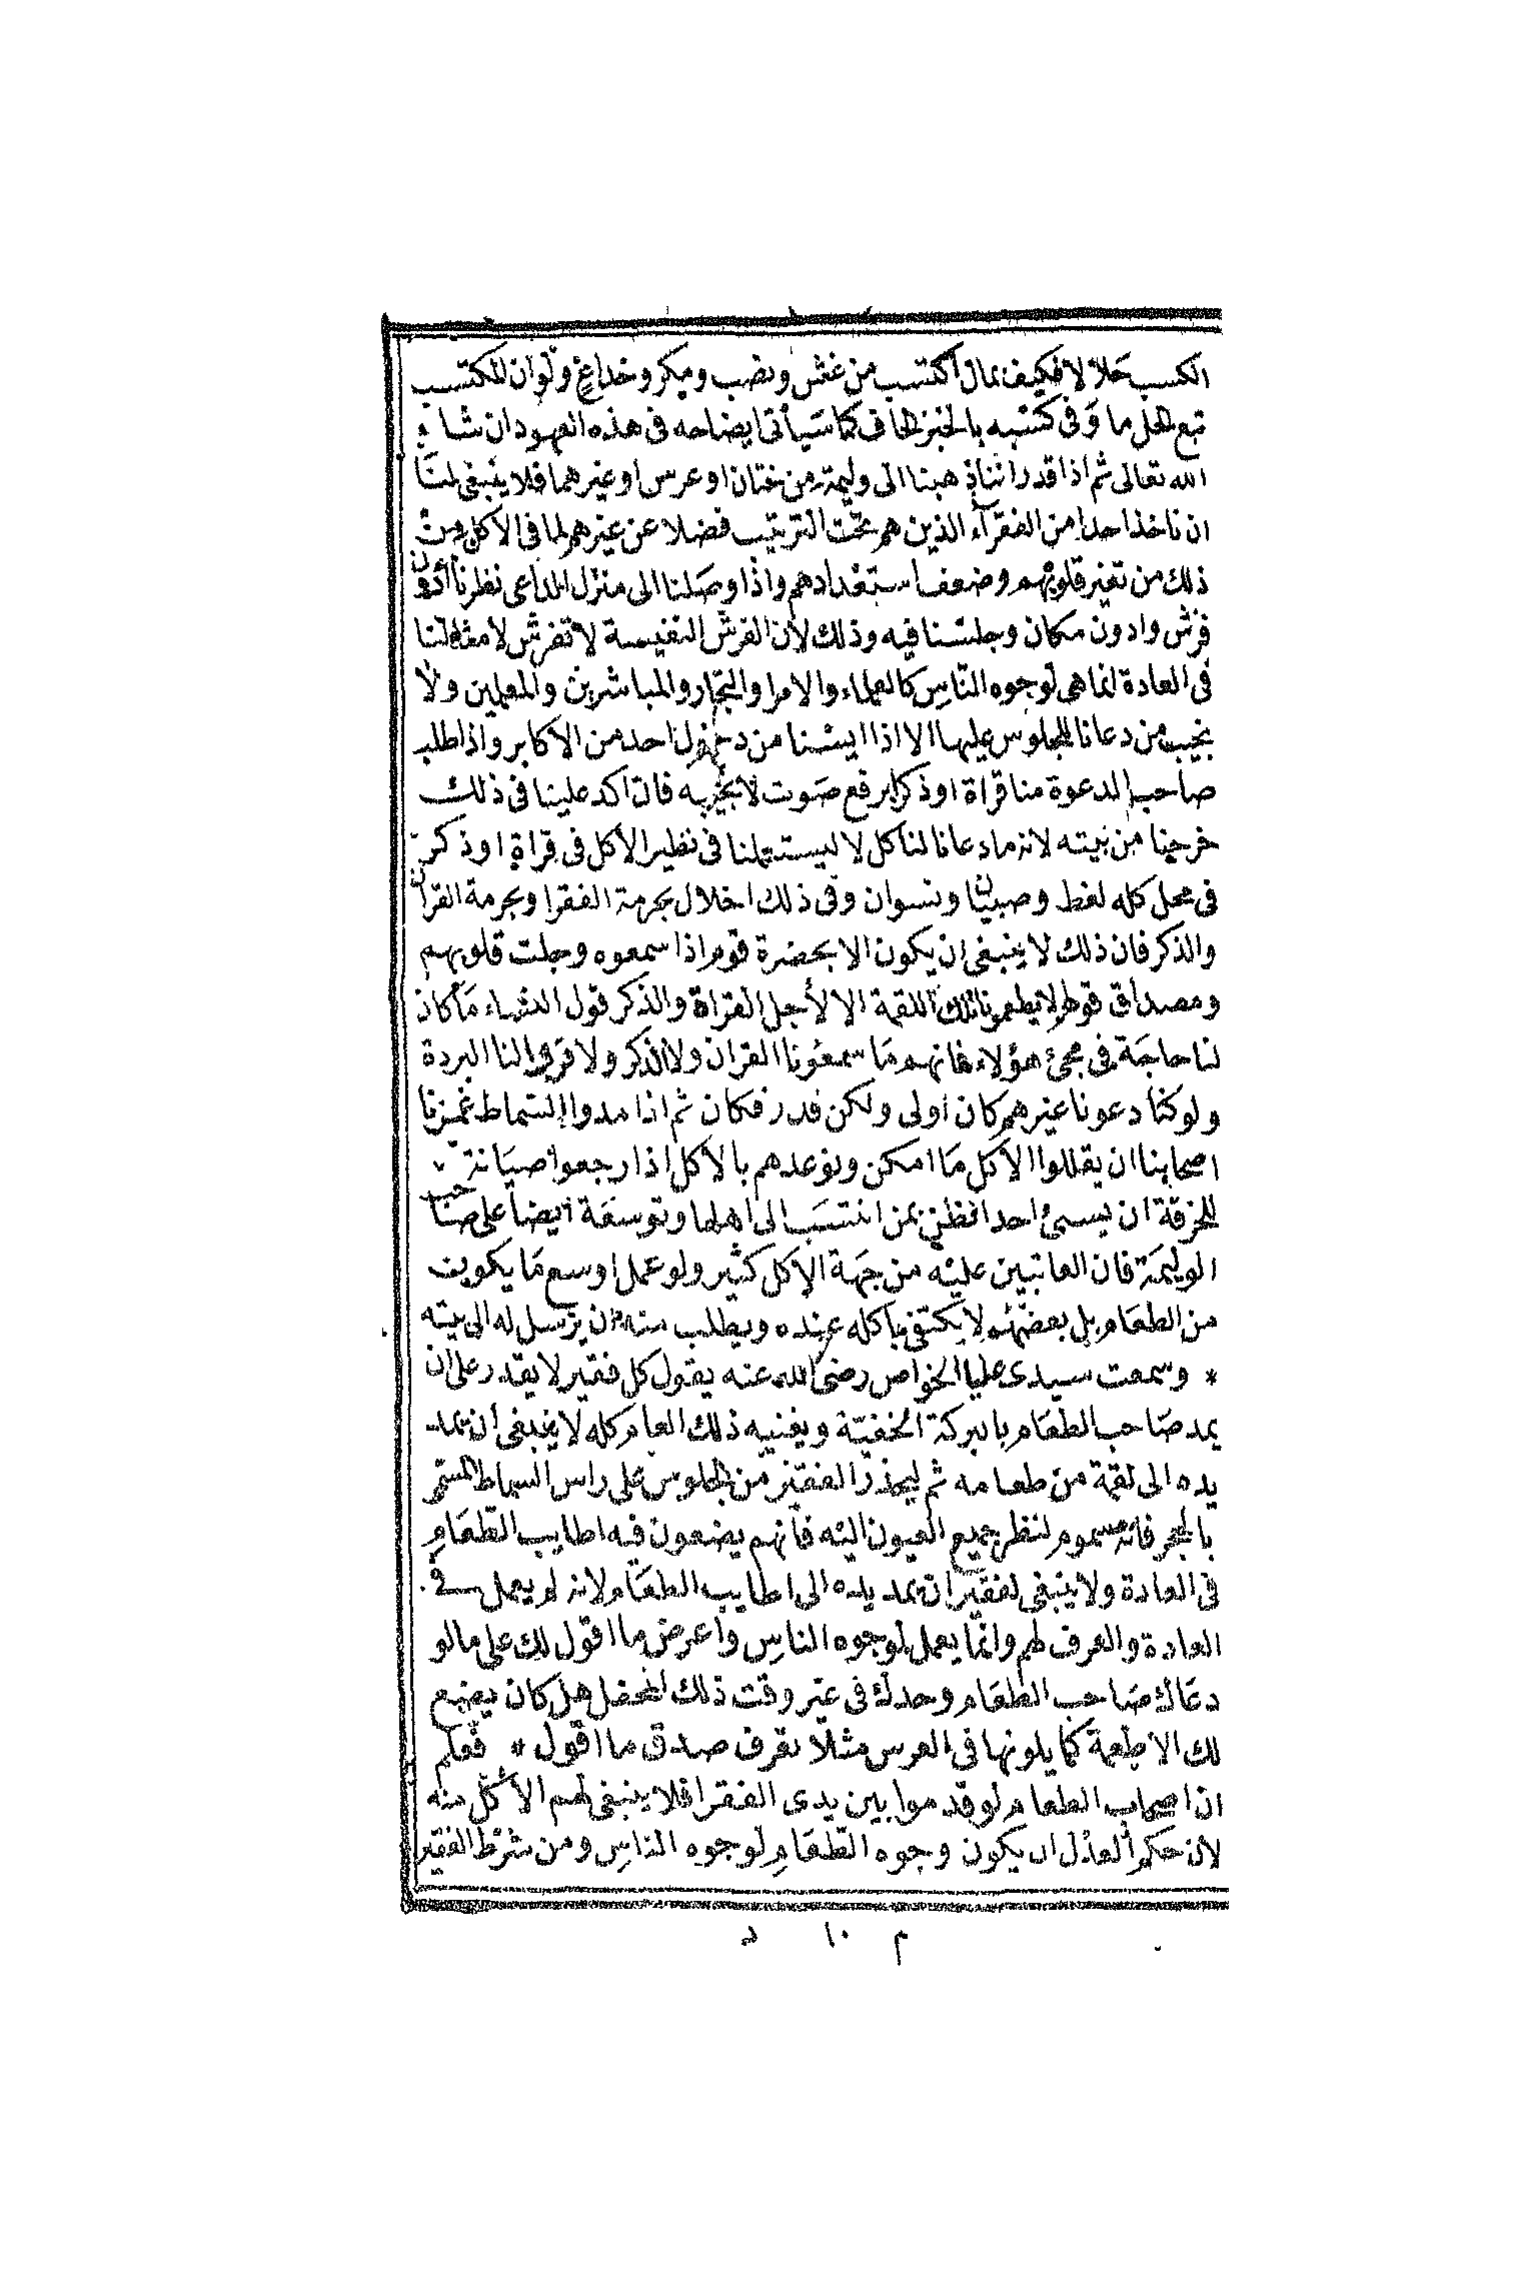 الكسب حلالا فكيف بمال اكتسب من غش ونصب ومكر وخداع ولو ان المكتسب
تبع الحل ما وفى كسبه بالخبز الحاف كما سيأتى ايضاحه فى هذه العهود ان شاء
الله تعالى ثم اذا قدر اننا ذهبنا الى وليمة من ختان او عرس او غيرهما فلا ينبغى لنا
ان ناخذ احدا من الفقرآء الذين هم تحت الترتيب فضلا عن غيرهم لما فى الاكل من
ذلك من تغير قلوبهم وضعف استعدادهم واذا وصلنا الى منزل الداعى نظرنا أدون
فرش وادون مكان وجلسنا فيه وذلك لأن الفرش النفيسة لا تفرش لامثالنا
فى العادة انما هى لوجوه الناس كالعلماء والامرا والتجار والمباشرين والمعلمين ولا
نجيب من دعانا للجلوس عليها الا اذا ايسنا من دخول احد من الاكابر واذا طلب
صاحب الدعوة منا قراة او ذكرا برفع صوت لا نجيبه فان اكد علينا فى ذلك
خرجنا من بيته لانه ما دعانا لناكل لا ليستعملنا فى نظير الاكل فى قراة او ذكر
فى محل كله لغط وصبيان ونسوان وفى ذلك اخلال بحرمة الفقرا وبحرمة القرآن
والذكر فان ذلك لا ينبغى ان يكون الا بحضرة قوم اذا سمعوه وجلت قلوبهم
ومصداق قولى لا يطعمونا تلك اللقمة الا لأجل القراة والذكر قول النساء ما كان
لنا حاجة فى مجئ هؤلاء فانهم ما سمعونا القران ولا الذكر ولا قروا لنا البردة
ولو كنا دعونا غيرهم كان اولى ولكن قدر فكان ثم اذا مدوا السماط غمزنا
اصحابنا ان يقللوا الاكل ما امكن ونوعدهم بالاكل اذا رجعوا صيانة
للخرقة ان يسئ احد الظن بمن انتسب الى اهلها وتوسعة ايضا على صاحب
الوليمة فان العاتبين عليه من جهة الاكل كثير ولو عمل اوسع ما يكون
من الطعام بل بعضهم لا يكتفى باكله عنده ويطلب منه ان يرسل له الى بيته
* وسمعت سيدى عليا الخواص رضى الله عنه يقول كل فقير لا يقدر على ان
يمد صاحب الطعام بالبركة الخفية ويغنيه ذلك العام كله لا ينبغى أن يمد
يده الى لقمة من طعامه ثم ليحذر الفقير من الجلوس على راس السماط المسمى
بالحجر فانه مسموم لنظر جميع العيون اليه فانهم يضعون فيه اطايب الطعام
فى العادة ولا ينبغى لفقير ان يمد يده الى اطايب الطعام لانه لم يعمل فى
العادة والعرف لهم وانما يعمل لوجوه الناس واعرض ما اقول لك على ما لو
دعاك صاحب الطعام وحدك فى غير وقت ذلك المحفل هل كان يصنع
لك الاطعمة كما يلونها فى العرس مثلا تعرف صدق ما اقول * فعلم
ان اصحاب الطعام لو قدموا بين يدى الفقرا فلا ينبغى لهم الأكل منه
لان حكم العدل ان يكون وجوه الطعام لوجوه الناس ومن شرط الفقير
م ١٠ د